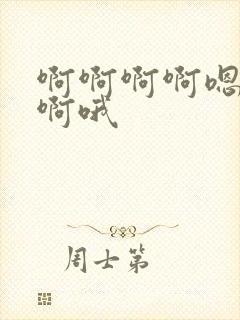 啊啊啊啊嗯
啊哦
周士第